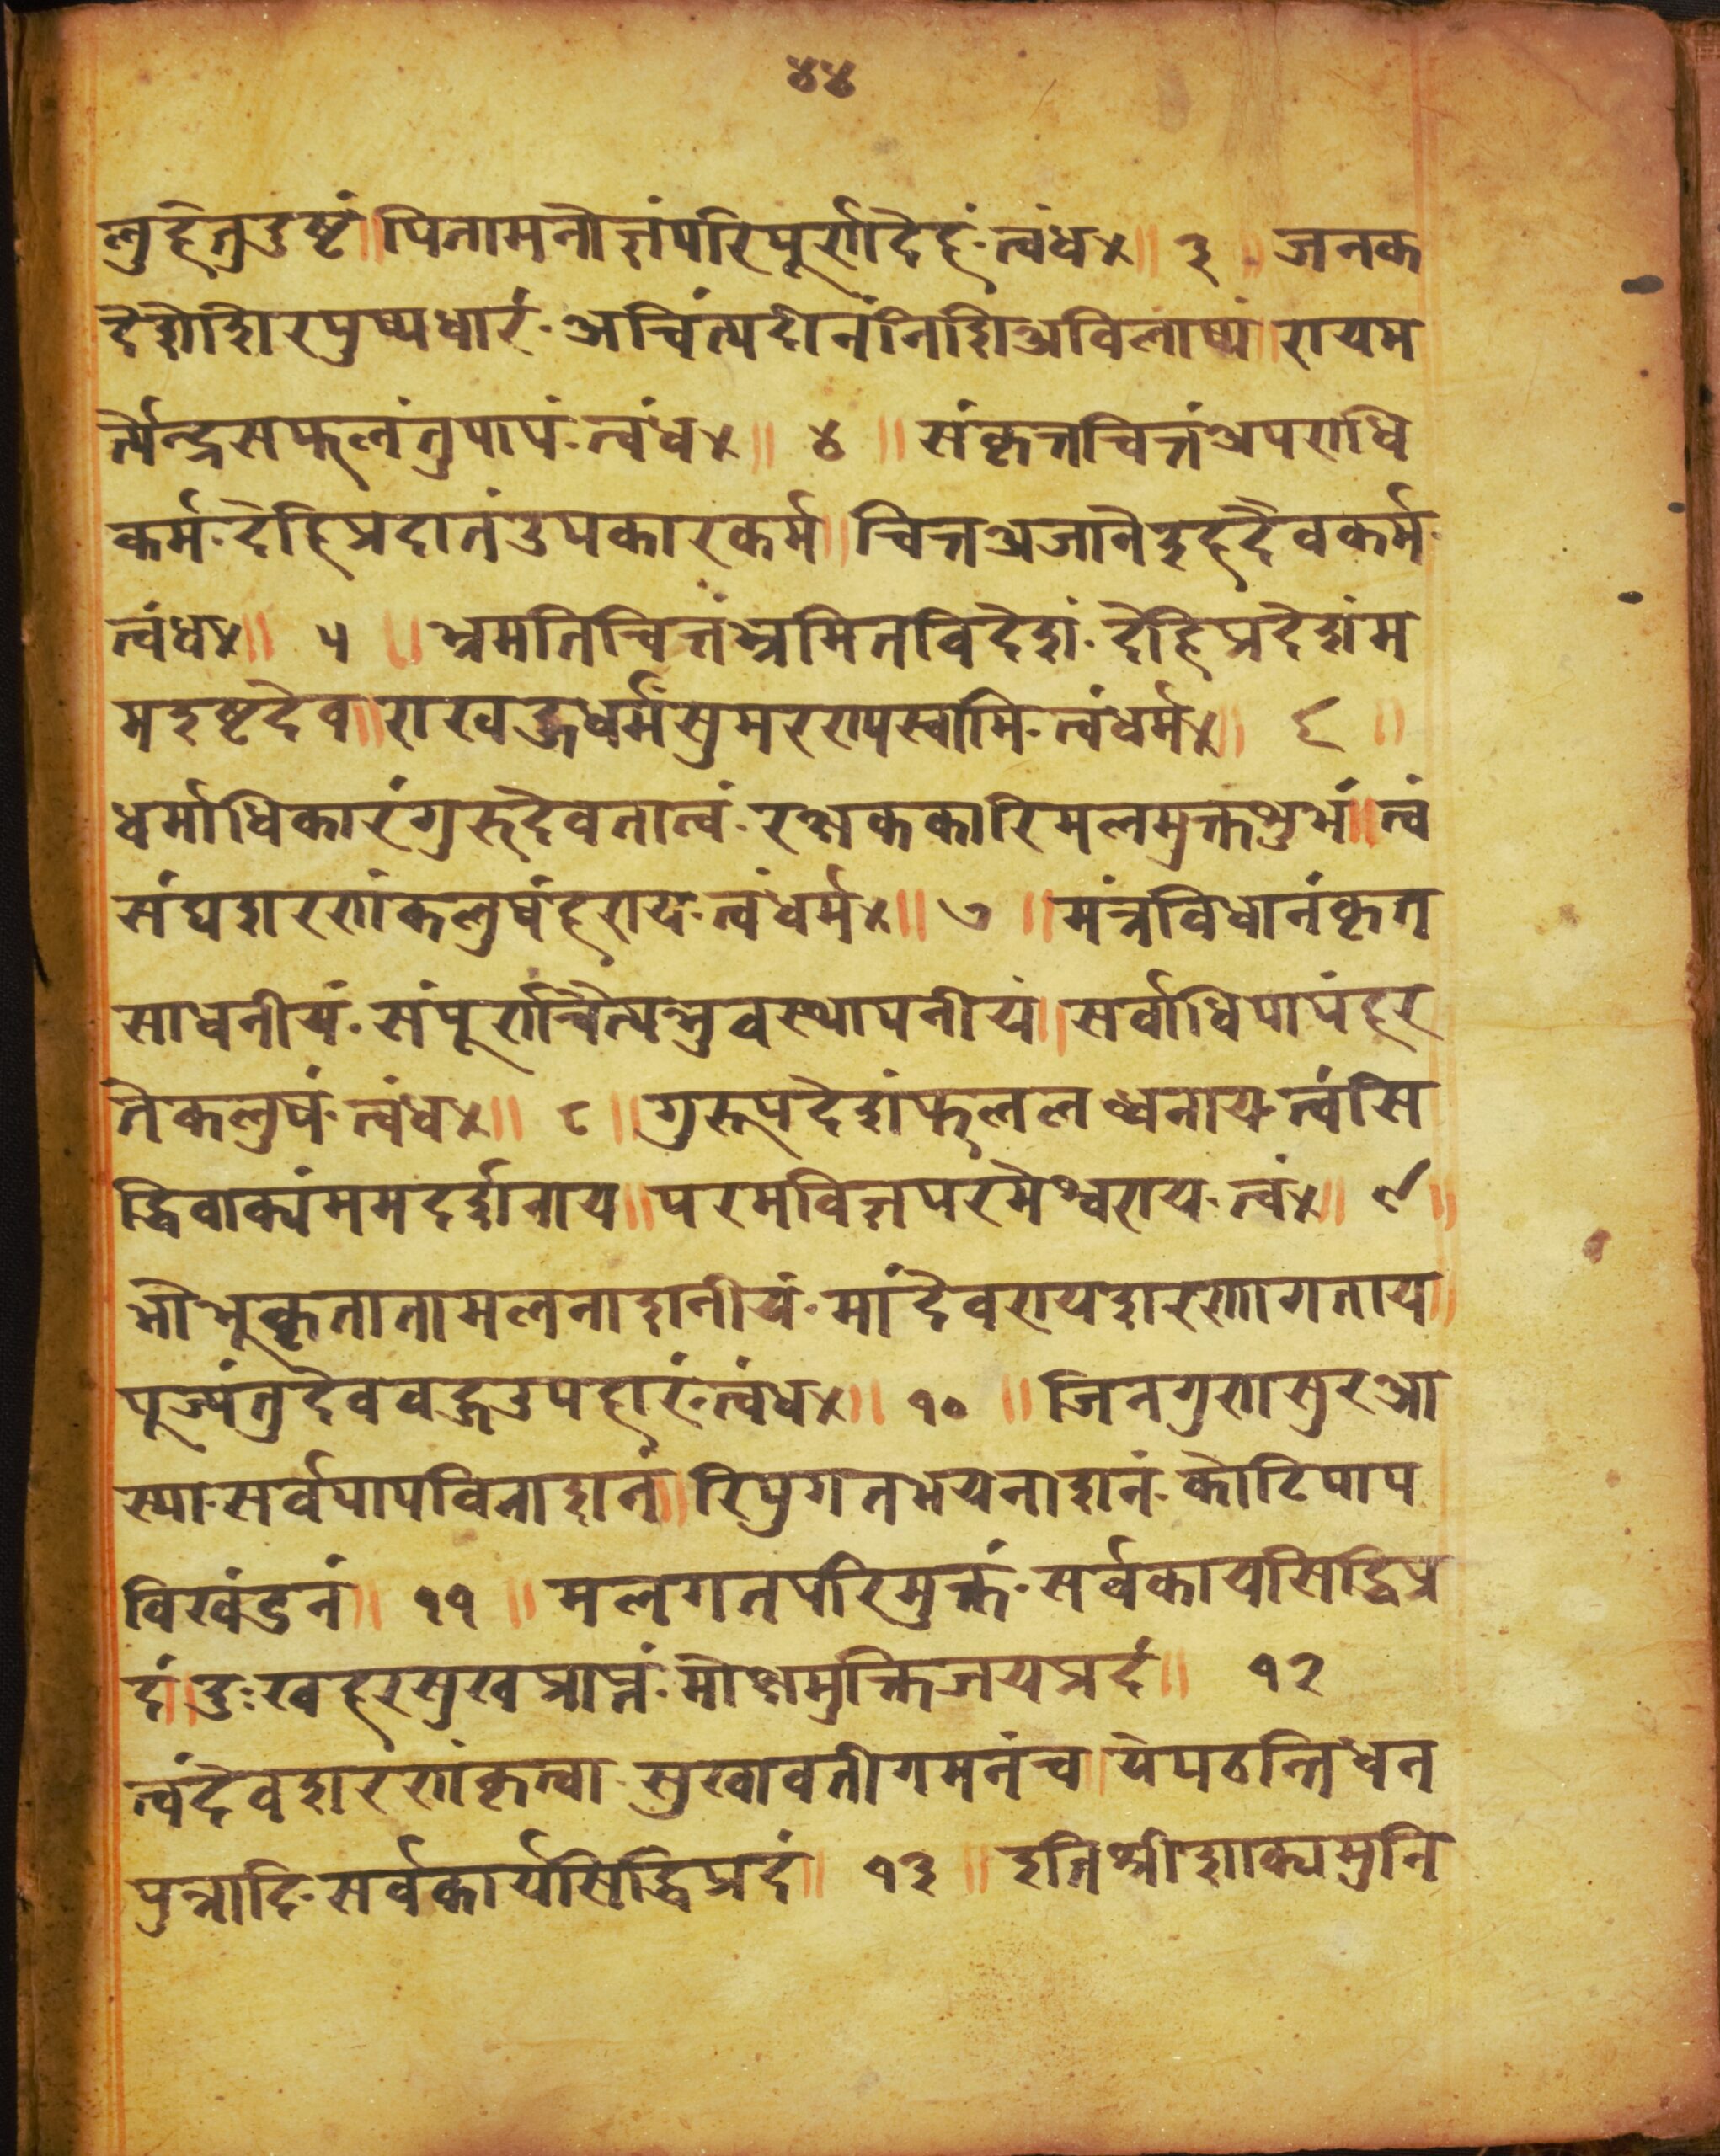 ४४
लुहेतुदुष्टं॥पितामनोज्ञंपरिपूर्णदेहं·त्वंध४॥ ३ ॥ जनक
देशेशिरपुष्पधारं·अचिंत्यदानंनिशिअविलाष्यं॥रायम
र्त्येन्द्रसफलंतुपापं·त्वंध४॥ ४ ॥ संकृत्तचित्तंअपराधि
कर्म·देहिप्रदातंउपकारकर्म॥चित्तअजानेइहदेवकर्म·
त्वंध४॥ ५ ॥ भ्रमतिचित्तंभ्रमितविदेशं·देहिप्रदेशंम
मइष्टदेव॥राखहुधर्मंसुमरणपस्वामि·त्वंधर्म४॥ ६ ॥
धर्माधिकारंगुरुदेवतात्वं·रक्षककारिमलमुक्तशुभं॥त्वं
संघशरणंकलुषंहराय·त्वंधर्म४॥ ७ ॥ मंत्रविधानंकृत
साधनीयं·संपूर्णचैत्यभुवस्थापनीयं॥सर्वाधिपापंहर
तेकलुषं·त्वंध४॥ ८ ॥ गुरूपदेशंफललब्धनाय·त्वंसि
द्धिवाक्यंममदर्शनाय॥परमविज्ञपरंमेश्वराय·त्वं४॥ ९ ॥
भोभूकृतातामलनाशनीयं·मांदेवरायशरणागताय॥
पूज्यंतुदेवबहुउपहारं·त्वंध४॥ १० ॥ जिनगुणसुरआ
स्या·सर्वपापविनाशनं॥रिपुगतभयनाशनं·कोटिपाप
विखंडनं॥ ११ ॥ मलगतपरिमुक्तं·सर्वकायसिद्धिप्र
दं॥दुःखहरसुखप्राप्तं·मोक्षमुक्तिजयप्रदं॥ १२
त्वंदेवशरंणंकृत्वा·सुखावतीगमनंच॥येपठन्तिधन
पुत्रादि·सर्वकार्यसिद्धिप्रदं॥ १३ ॥ इतिश्रीशाक्यमुनि